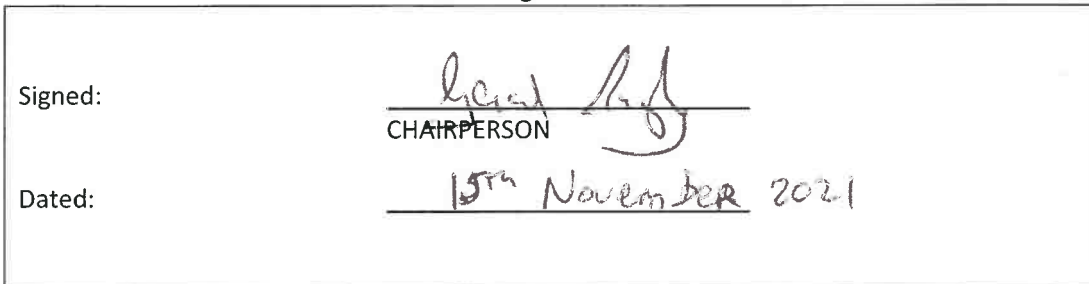 Signed:
CHAIRPERSON
Dated: 15Th November 2021